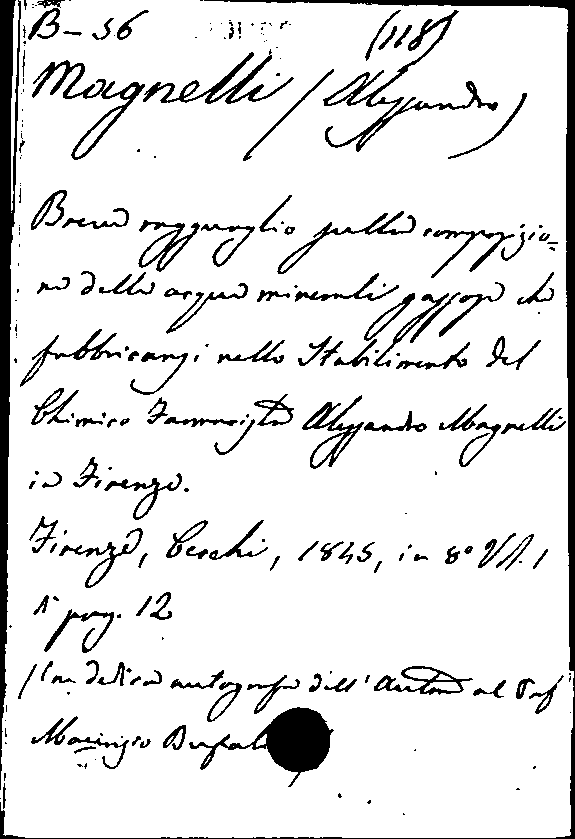 B-56 (118)
Magnelli (Alessandro)
Breve ragguaglio sulla composizio=
ne delle acque minerali gassose che
fabbricansi nello Stabilimento del
Chimico Farmacista Alessandro Magnelli
in Firenze.
Firenze, Cecchi, 1845, in 8° Vol. 1
di pag. 12
(Con dedica autografa dell'Autore al Prof
Maurizio Bufali